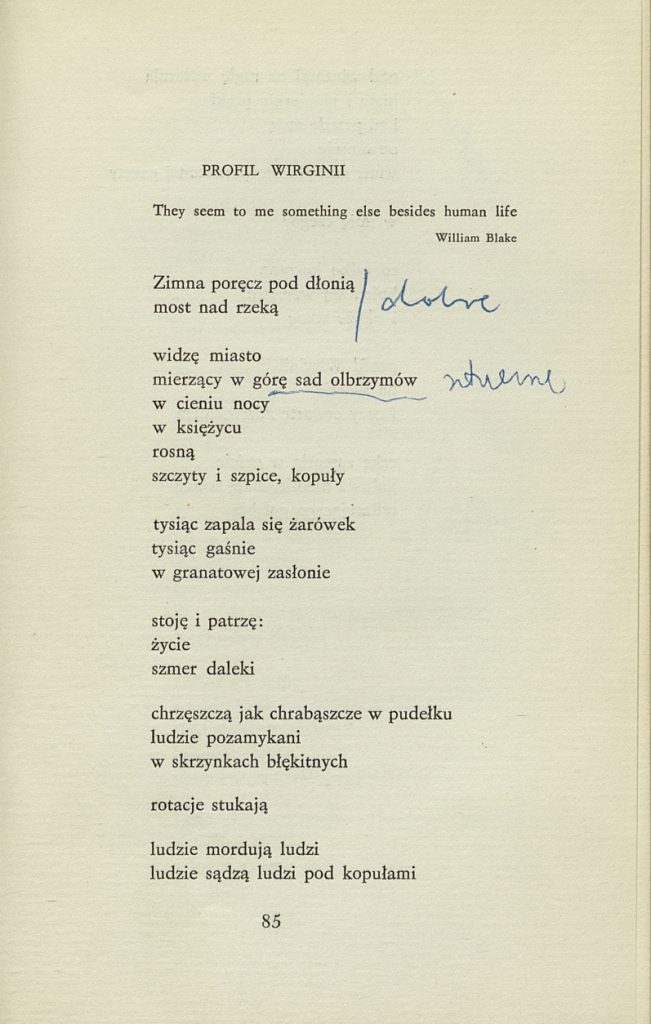 PROFIL WIRGINII
They seem to me something else besides human life
William Blake
Zimna poręcz pod dłonią
most nad rzeką
dobre
widzę miasto
mierzący w górę sad olbrzymów
w cieniu nocy
w księżycu
rosną
szczyty i szpice, kopuły
tysiąc zapala się żarówek
tysiąc gaśnie
w granatowej zasłonie
stoję i patrzę:
życie
szmer daleki
chrzęszczą jak chrabąszcze w pudełku
ludzie pozamykani
w skrzynkach błękitnych
rotacje stukają
ludzie mordują ludzi
ludzie sądzą ludzi pod kopułami
85